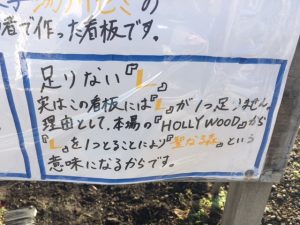 者で作った看板です。
足りない『L』
実はこの看板には『L』が1つ足りません。
理由として、本場の『HOLLYWOOD』から
『L』を1つとることにより『聖なる森』という
意味になるからです。